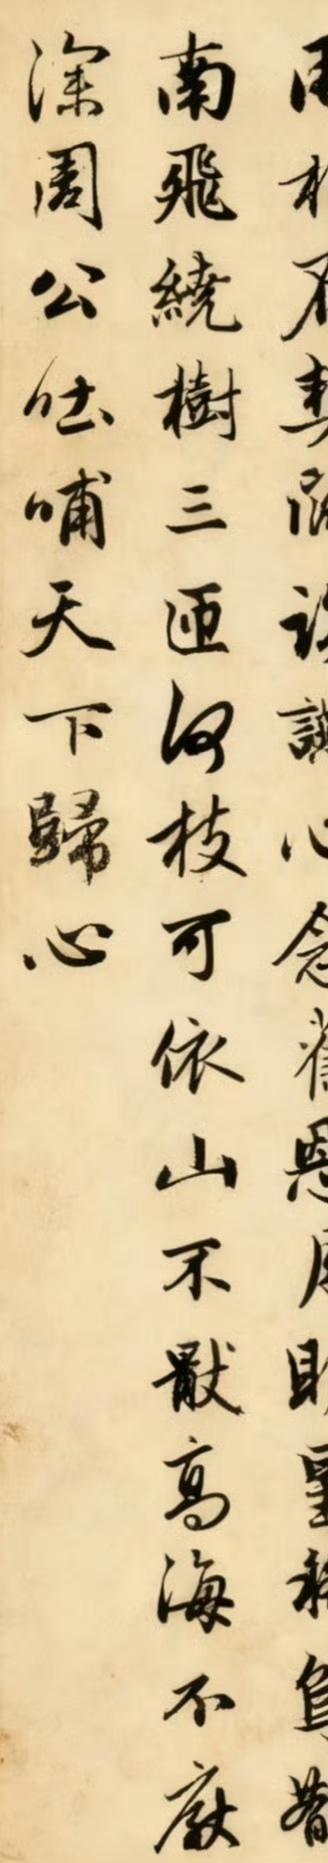 用相存契闊談讌心念舊恩月明星稀烏鵲
南飛繞樹三迊何枝可依山不猒高海不厭
深周公吐哺天下歸心